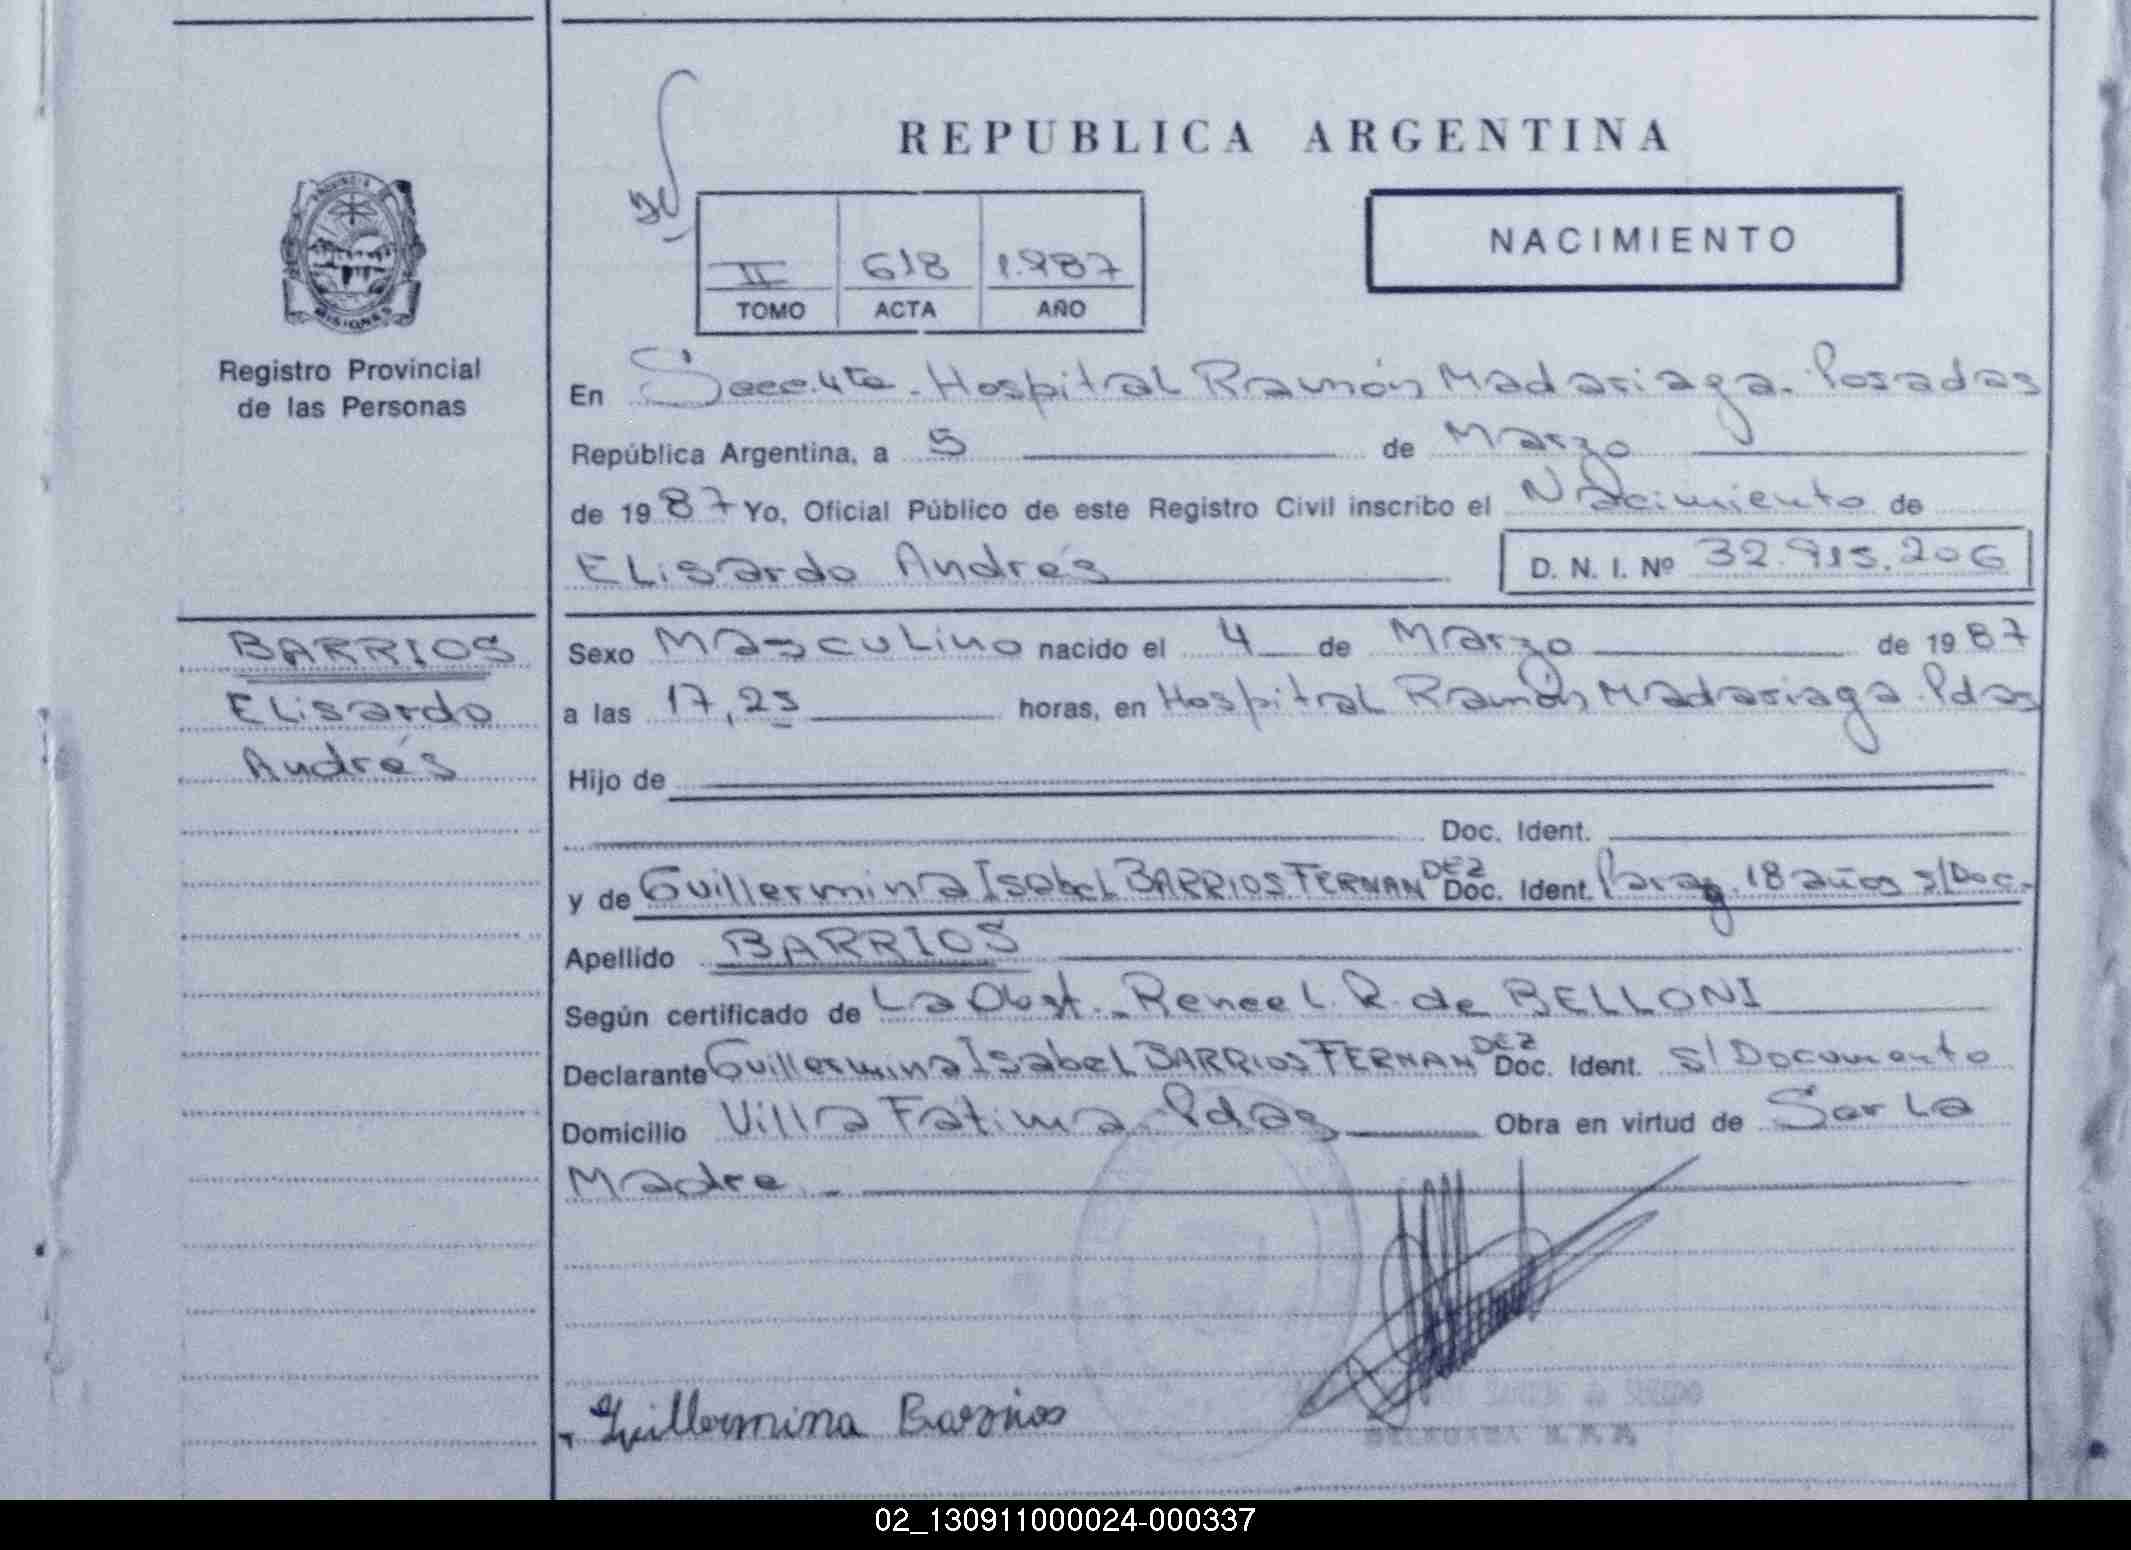 REPUBLICA ARGENTINA
NACIMIENTO
II 618 1.987
TOMO ACTA AÑO
PROVINCIA DE
MISIONES
Registro Provincial
de las Personas
En Secc. 4ta - Hospital Ramón Madariaga - Posadas
República Argentina, a 5 de Marzo
de 1987 Yo, Oficial Público de este Registro Civil inscribo el Nacimiento de
ELisardo Andrés
D. N. I. Nº 32.915.206
BARRIOS
ELisardo
Andrés
Sexo MascuLino nacido el 4 de Marzo de 1987
a las 17,25 horas, en HospitaL Ramón Madariaga - Pdas
Hijo de
Doc. Ident.
y de Guillermina IsabeL BARRIOS FERNANDEZ Doc. Ident. Parag. 18 años s/Doc.-
Apellido BARRIOS
Según certificado de La Obst. - Renee L. R. de BELLONI
Declarante Guillermina IsabeL BARRIOS FERNANDEZ Doc. Ident. s/ Documento
Domicilio Villa Fatima - Pdas Obra en virtud de Ser La
Madre -
Guillermina Barrios
DELEGADA R.P.P.
02_130911000024-000337